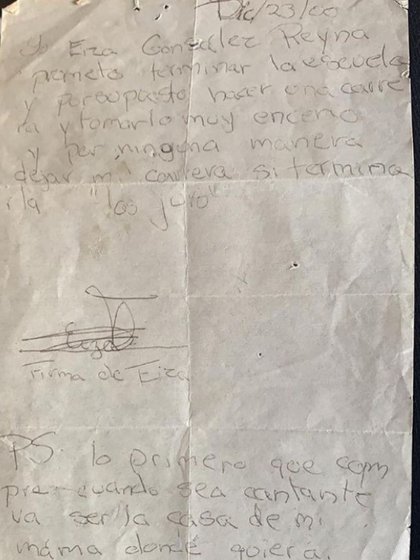 Dic/23/00
Yo Eiza González Reyna
prometo terminar la escuela
y porsupuesto hacer una carre
ra y tomarlo muy encerio
y por ninguna manera
dejar mi carrera si termina
rla "los juro"
Eiza
Firma de Eiza
PS: lo primero que com
pre cuando sea cantante
va ser la casa de mi
mama donde quiera